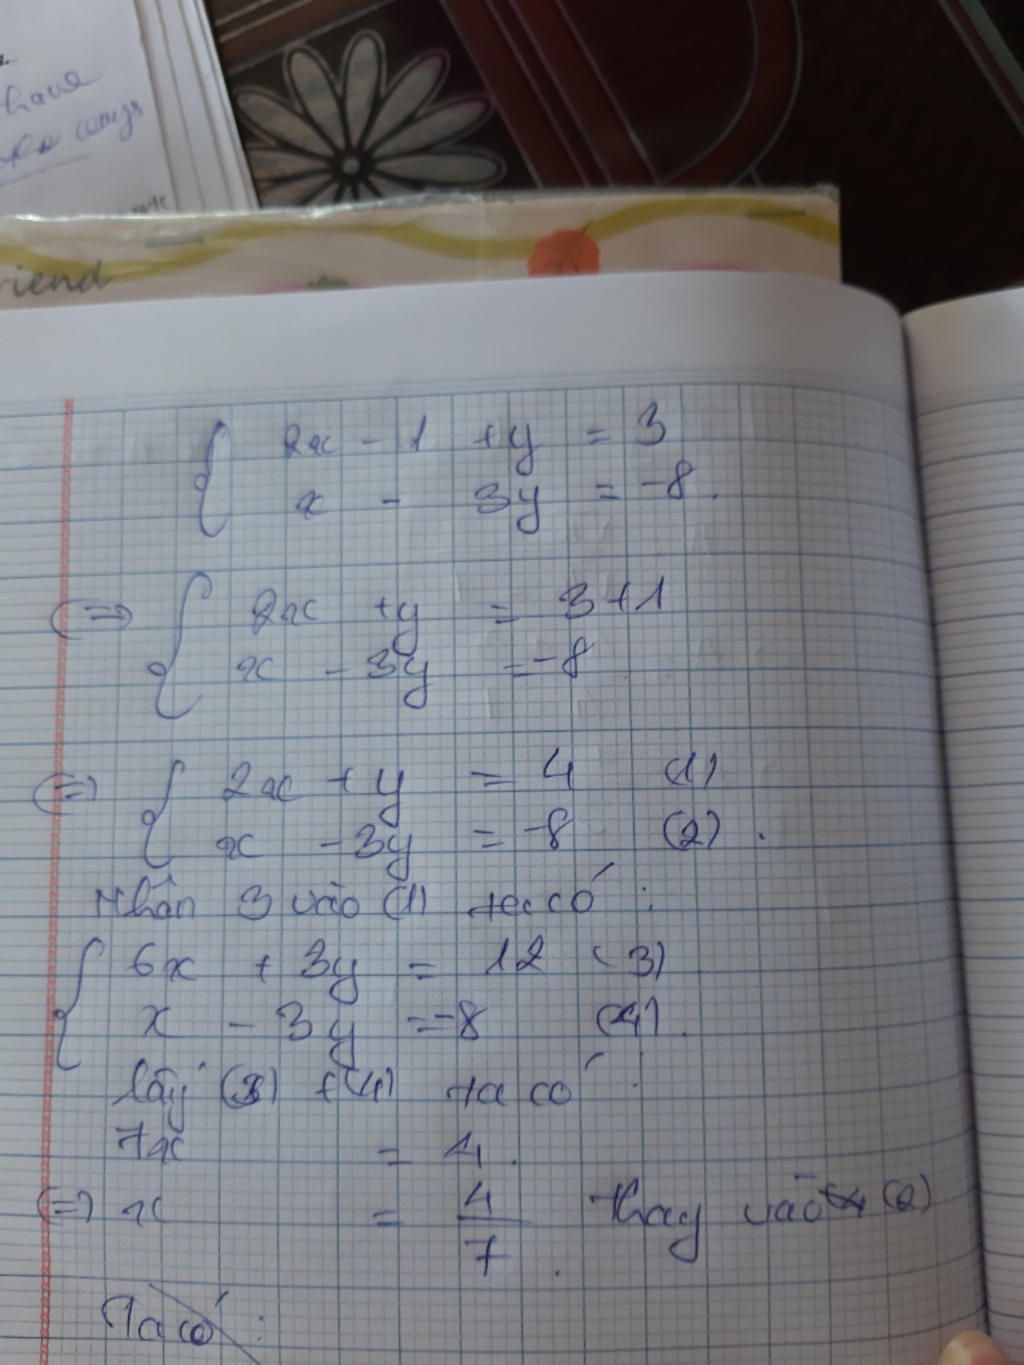 have
riend
2x - 1 + y = 3
x - 3y = -8.
(=) 2x + y = 3 + 1
x - 3y = -8
(=) 2x + y = 4 (1)
x - 3y = -8 (2).
Nhân 3 vào (1) ta có :
6x + 3y = 12 (3)
x - 3y = -8 (4).
lấy (3) + (4) ta có :
7x = 4.
(=) x = 4/7. Thay vào (2)
Ta có :